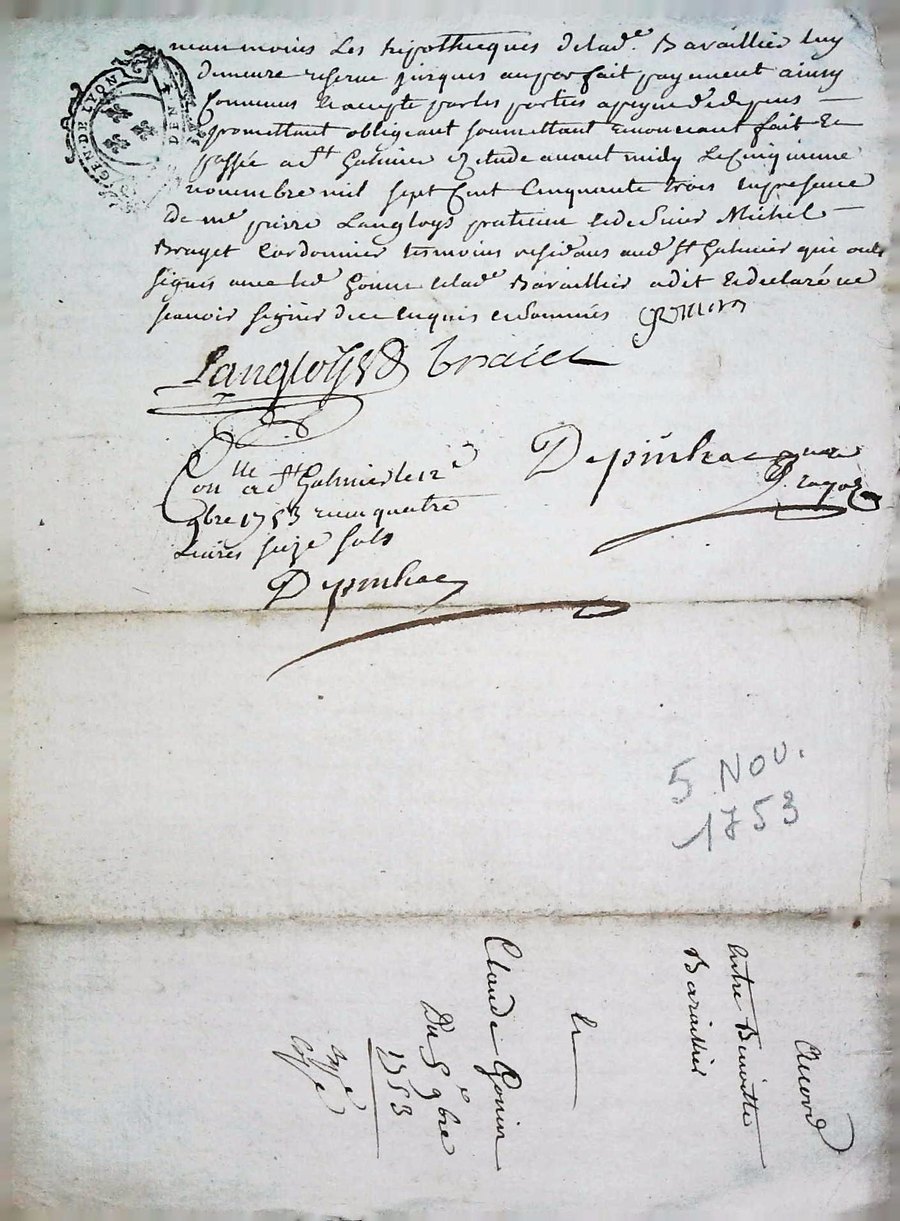 GEN DE LYON
DEN
neanmoins les hipotheques de lad.e Baraillier luy
demeure reserve jusques au parfait payement ainsy
convenus et accepte par les parties a peyne de depens
promettant obligeant soumettant renonceant fait et
passée a St Galmier etude avant midy le cinquieme
novembre mil sept cent cinquante trois en presence
de me pierre Langloys praticien et de sieur Michel
Brayet cordonnier tesmoins residans aud St Galmier qui ont
signés avec led Gonin et lad.e Baraillier a dit et declaré ne
scavoir signer de ce enquis et sommés Gonin
Langloys Braiet
Conlle a St Galmier le 12e
9bre 1753 receu quatre
Livres seize sols
Depinhac
Depinhac
5 NOV.
1753
Accord
Entre Benoitte
Baraillier
Et
Claude Gonin
Du 5e 9bre
1753